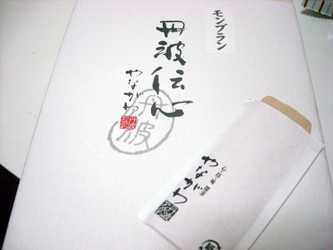 モンブラン
丹波伝心
やながわ
丹波
やながわ